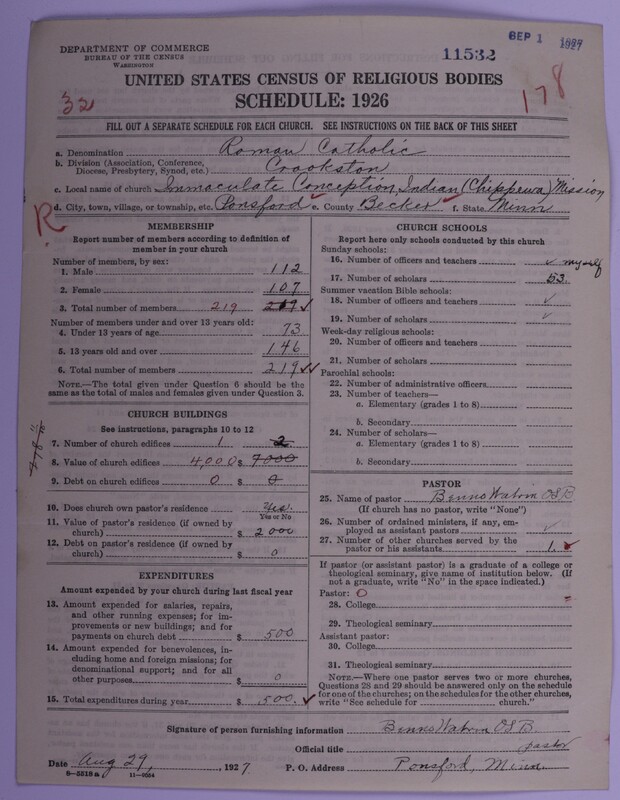 DEPARTMENT OF COMMERCE
BUREAU OF THE CENSUS
WASHINGTON
11532
SEP 1 1927
UNITED STATES CENSUS OF RELIGIOUS BODIES
SCHEDULE: 1926
32
178
FILL OUT A SEPARATE SCHEDULE FOR EACH CHURCH. SEE INSTRUCTIONS ON THE BACK OF THIS SHEET
a. Denomination Roman Catholic
b. Division (Association, Conference,
Diocese, Presbytery, Synod, etc.) Crookston
c. Local name of church Immaculate Conception, Indian (Chippewa) Mission
d. City, town, village, or township, etc. Ponsford e. County Becker f. State Minn
R
MEMBERSHIP
Report number of members according to definition of
member in your church
Number of members, by sex:
1. Male 112
2. Female 107
3. Total number of members 219 219
Number of members under and over 13 years old:
4. Under 13 years of age 73
5. 13 years old and over 146
6. Total number of members 219
NOTE.—The total given under Question 6 should be the
same as the total of males and females given under Question 3.
CHURCH BUILDINGS
See instructions, paragraphs 10 to 12
7. Number of church edifices 1 2
8. Value of church edifices 4000 $ 7000
9. Debt on church edifices 0 $ 0
10. Does church own pastor's residence Yes
Yes or No
11. Value of pastor's residence (if owned by
church) $ 2000
12. Debt on pastor's residence (if owned by
church) $ 0
EXPENDITURES
Amount expended by your church during last fiscal year
13. Amount expended for salaries, repairs,
and other running expenses; for im-
provements or new buildings; and for
payments on church debt $ 500
14. Amount expended for benevolences, in-
cluding home and foreign missions; for
denominational support; and for all
other purposes $ 0
15. Total expenditures during year $ 500.
CHURCH SCHOOLS
Report here only schools conducted by this church
Sunday schools:
16. Number of officers and teachers myself
17. Number of scholars 53.
Summer vacation Bible schools:
18. Number of officers and teachers
19. Number of scholars
Week-day religious schools:
20. Number of officers and teachers
21. Number of scholars
Parochial schools:
22. Number of administrative officers
23. Number of teachers—
a. Elementary (grades 1 to 8)
b. Secondary
24. Number of scholars—
a. Elementary (grades 1 to 8)
b. Secondary
PASTOR
25. Name of pastor Benno Watrin OSB
(If church has no pastor, write "None")
26. Number of ordained ministers, if any, em-
ployed as assistant pastors
27. Number of other churches served by the
pastor or his assistants 1.
If pastor (or assistant pastor) is a graduate of a college or
theological seminary, give name of institution below. (If
not a graduate, write "No" in the space indicated.)
Pastor: O
28. College
29. Theological seminary
Assistant pastor:
30. College
31. Theological seminary
NOTE.—Where one pastor serves two or more churches,
Questions 28 and 29 should be answered only on the schedule
for one of the churches; on the schedules for the other churches,
write "See schedule for church."
Signature of person furnishing information Benno Watrin OSB.
Official title pastor
Date Aug 29, , 1927 P. O. Address Ponsford, Minn.
8—5518 a 11—9554